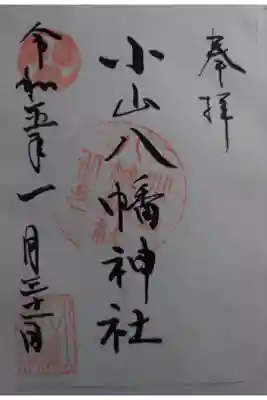 奉拝
小山八幡神社
令和五年一月二十一日